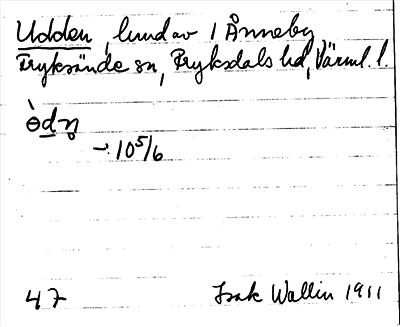 Udden, hmd av 1 Ånneby,
Fryksände sn, Fryksdals hd, Värml. l.
ɵ̀dn̥
10⁵/6
47 Isak Wallin 1911